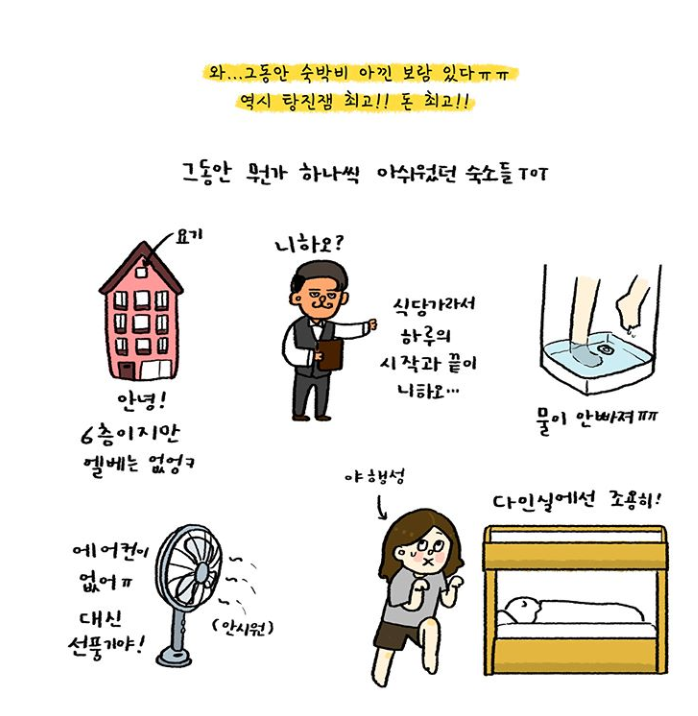 와...그동안 숙박비 아낀 보람 있다ㅠㅠ
역시 탕진잼 최고!! 돈 최고!!
그동안 뭔가 하나씩 아쉬웠던 숙소들 ToT
요기
안녕!
6층이지만
엘베는 없엉ㅋ
니하오?
식당가라서
하루의
시작과 끝이
니하오...
물이 안빠져ㅠㅠ
에어컨이
없어ㅠ
대신
선풍기야!
(안시원)
야행성
다인실에선 조용히!